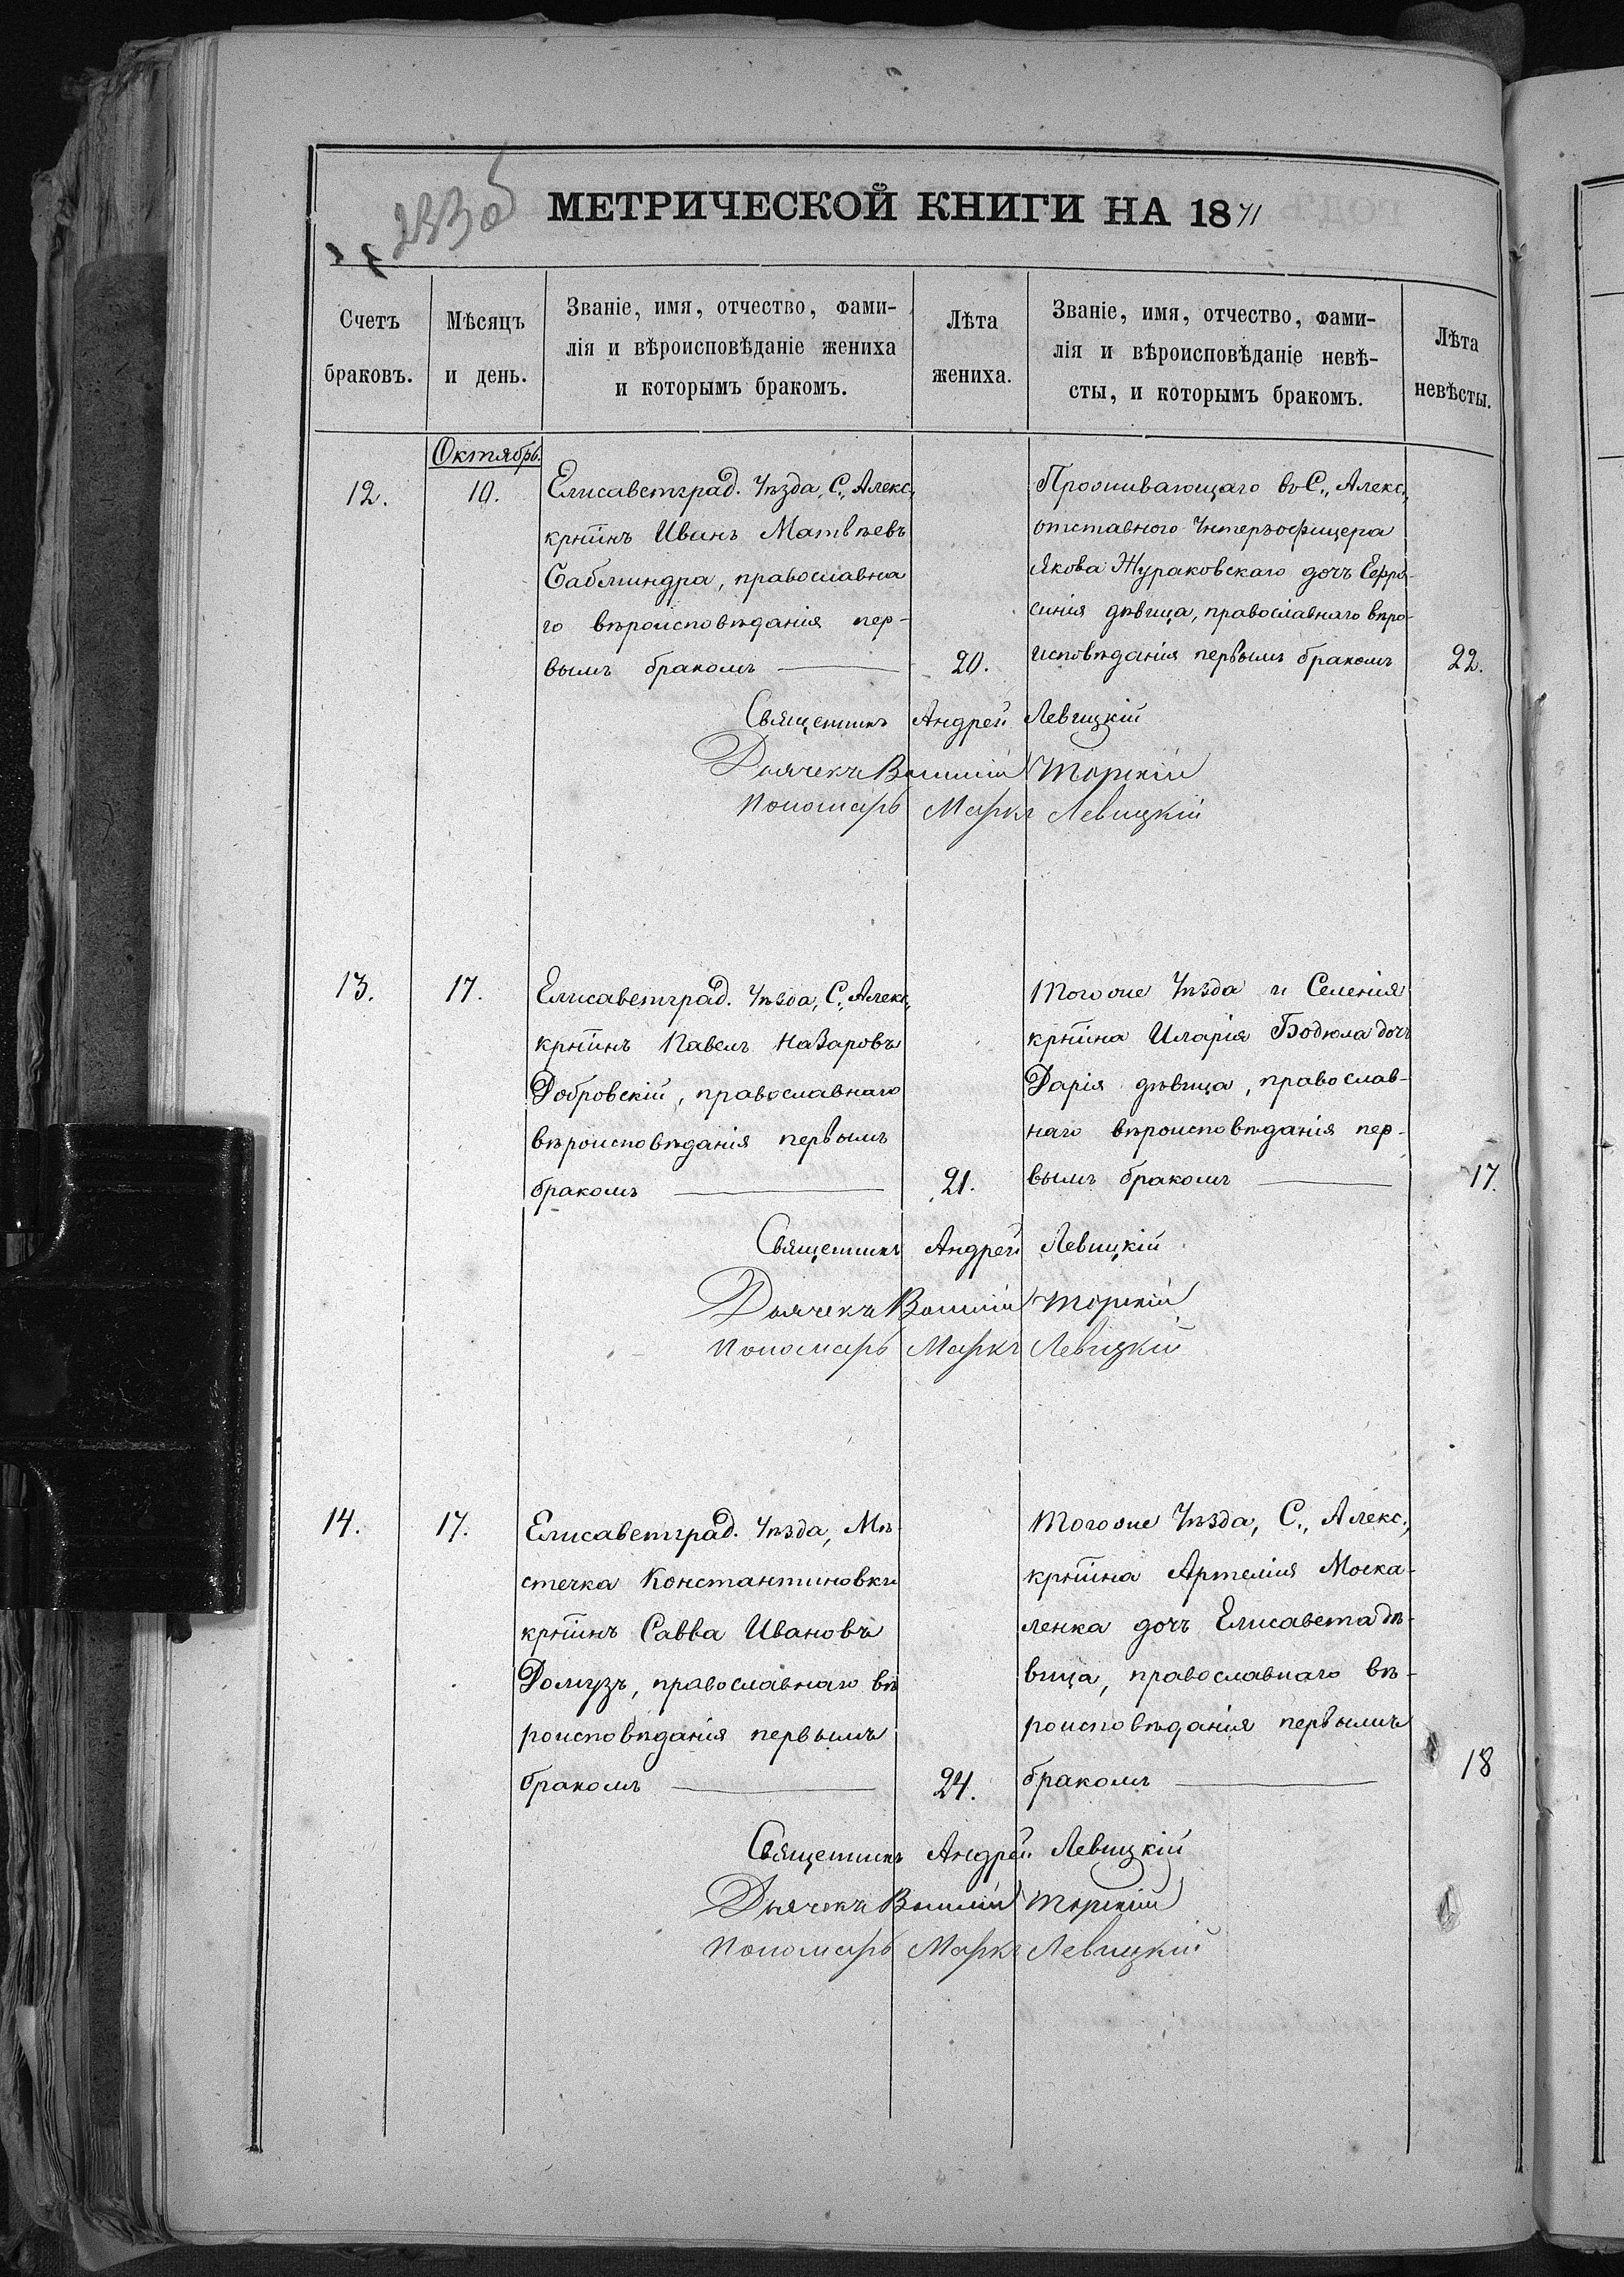 283 об
МЕТРИЧЕСКОЙ КНИГИ НА 1871
Счетъ браковъ.
Мѣсяцъ и день.
Званіе, имя, отчество, фами-
лія и вѣроисповѣданіе жениха
и которымъ бракомъ.
Лѣта жениха.
Званіе, имя, отчество, фами-
лія и вѣроисповѣданіе невѣ-
сты, и которымъ бракомъ.
Лѣта невѣсты.
Октябрь.
12.
10.
Елисаветград. Уѣзда, С., Алекс.,
крнтинъ Иванъ Матвѣевъ
православна
го вѣроисповѣданія пер-
вымъ бракомъ
20.
Проживающаго въ С., Алекс.,
отставного Унтеръофицера
Якова Жураковскаго дочь Евфро-
синія дѣвица, православнаго вѣро-
исповѣданія первымъ бракомъ
22.
Священникъ Андрей Левицкій
Дьячекъ Василій Торскій
Пономарь Маркъ Левицкій
13.
17.
Елисаветград. Уѣзда, С., Алекс.,
крнтинъ Павелъ Назаровъ
Добровскій, православнаго
вѣроисповѣданія первымъ
бракомъ
21.
Тогоже Уѣзда и Селенія
крнтина Иларія Бодюла дочь
Дарія дѣвица, православ-
наго вѣроисповѣданія пер-
вымъ бракомъ
17.
Священникъ Андрей Левицкій
Дьячекъ Василій Торскій
Пономарь Маркъ Левицкій
14.
17.
Елисаветград. Уѣзда, Мѣ-
стечка Константиновки
крнтинъ Савва Ивановъ
Домузъ, православнаго вѣ
роисповѣданія первымъ
бракомъ
24.
Тогоже Уѣзда, С., Алекс.,
крнтина Артемія Моска-
ленка дочь Елисавета дѣ-
вица, православнаго вѣ-
роисповѣданія первымъ
бракомъ
18
Священникъ Андрей Левицкій
Дьячекъ Василій Торскій
Пономарь Маркъ Левицкій